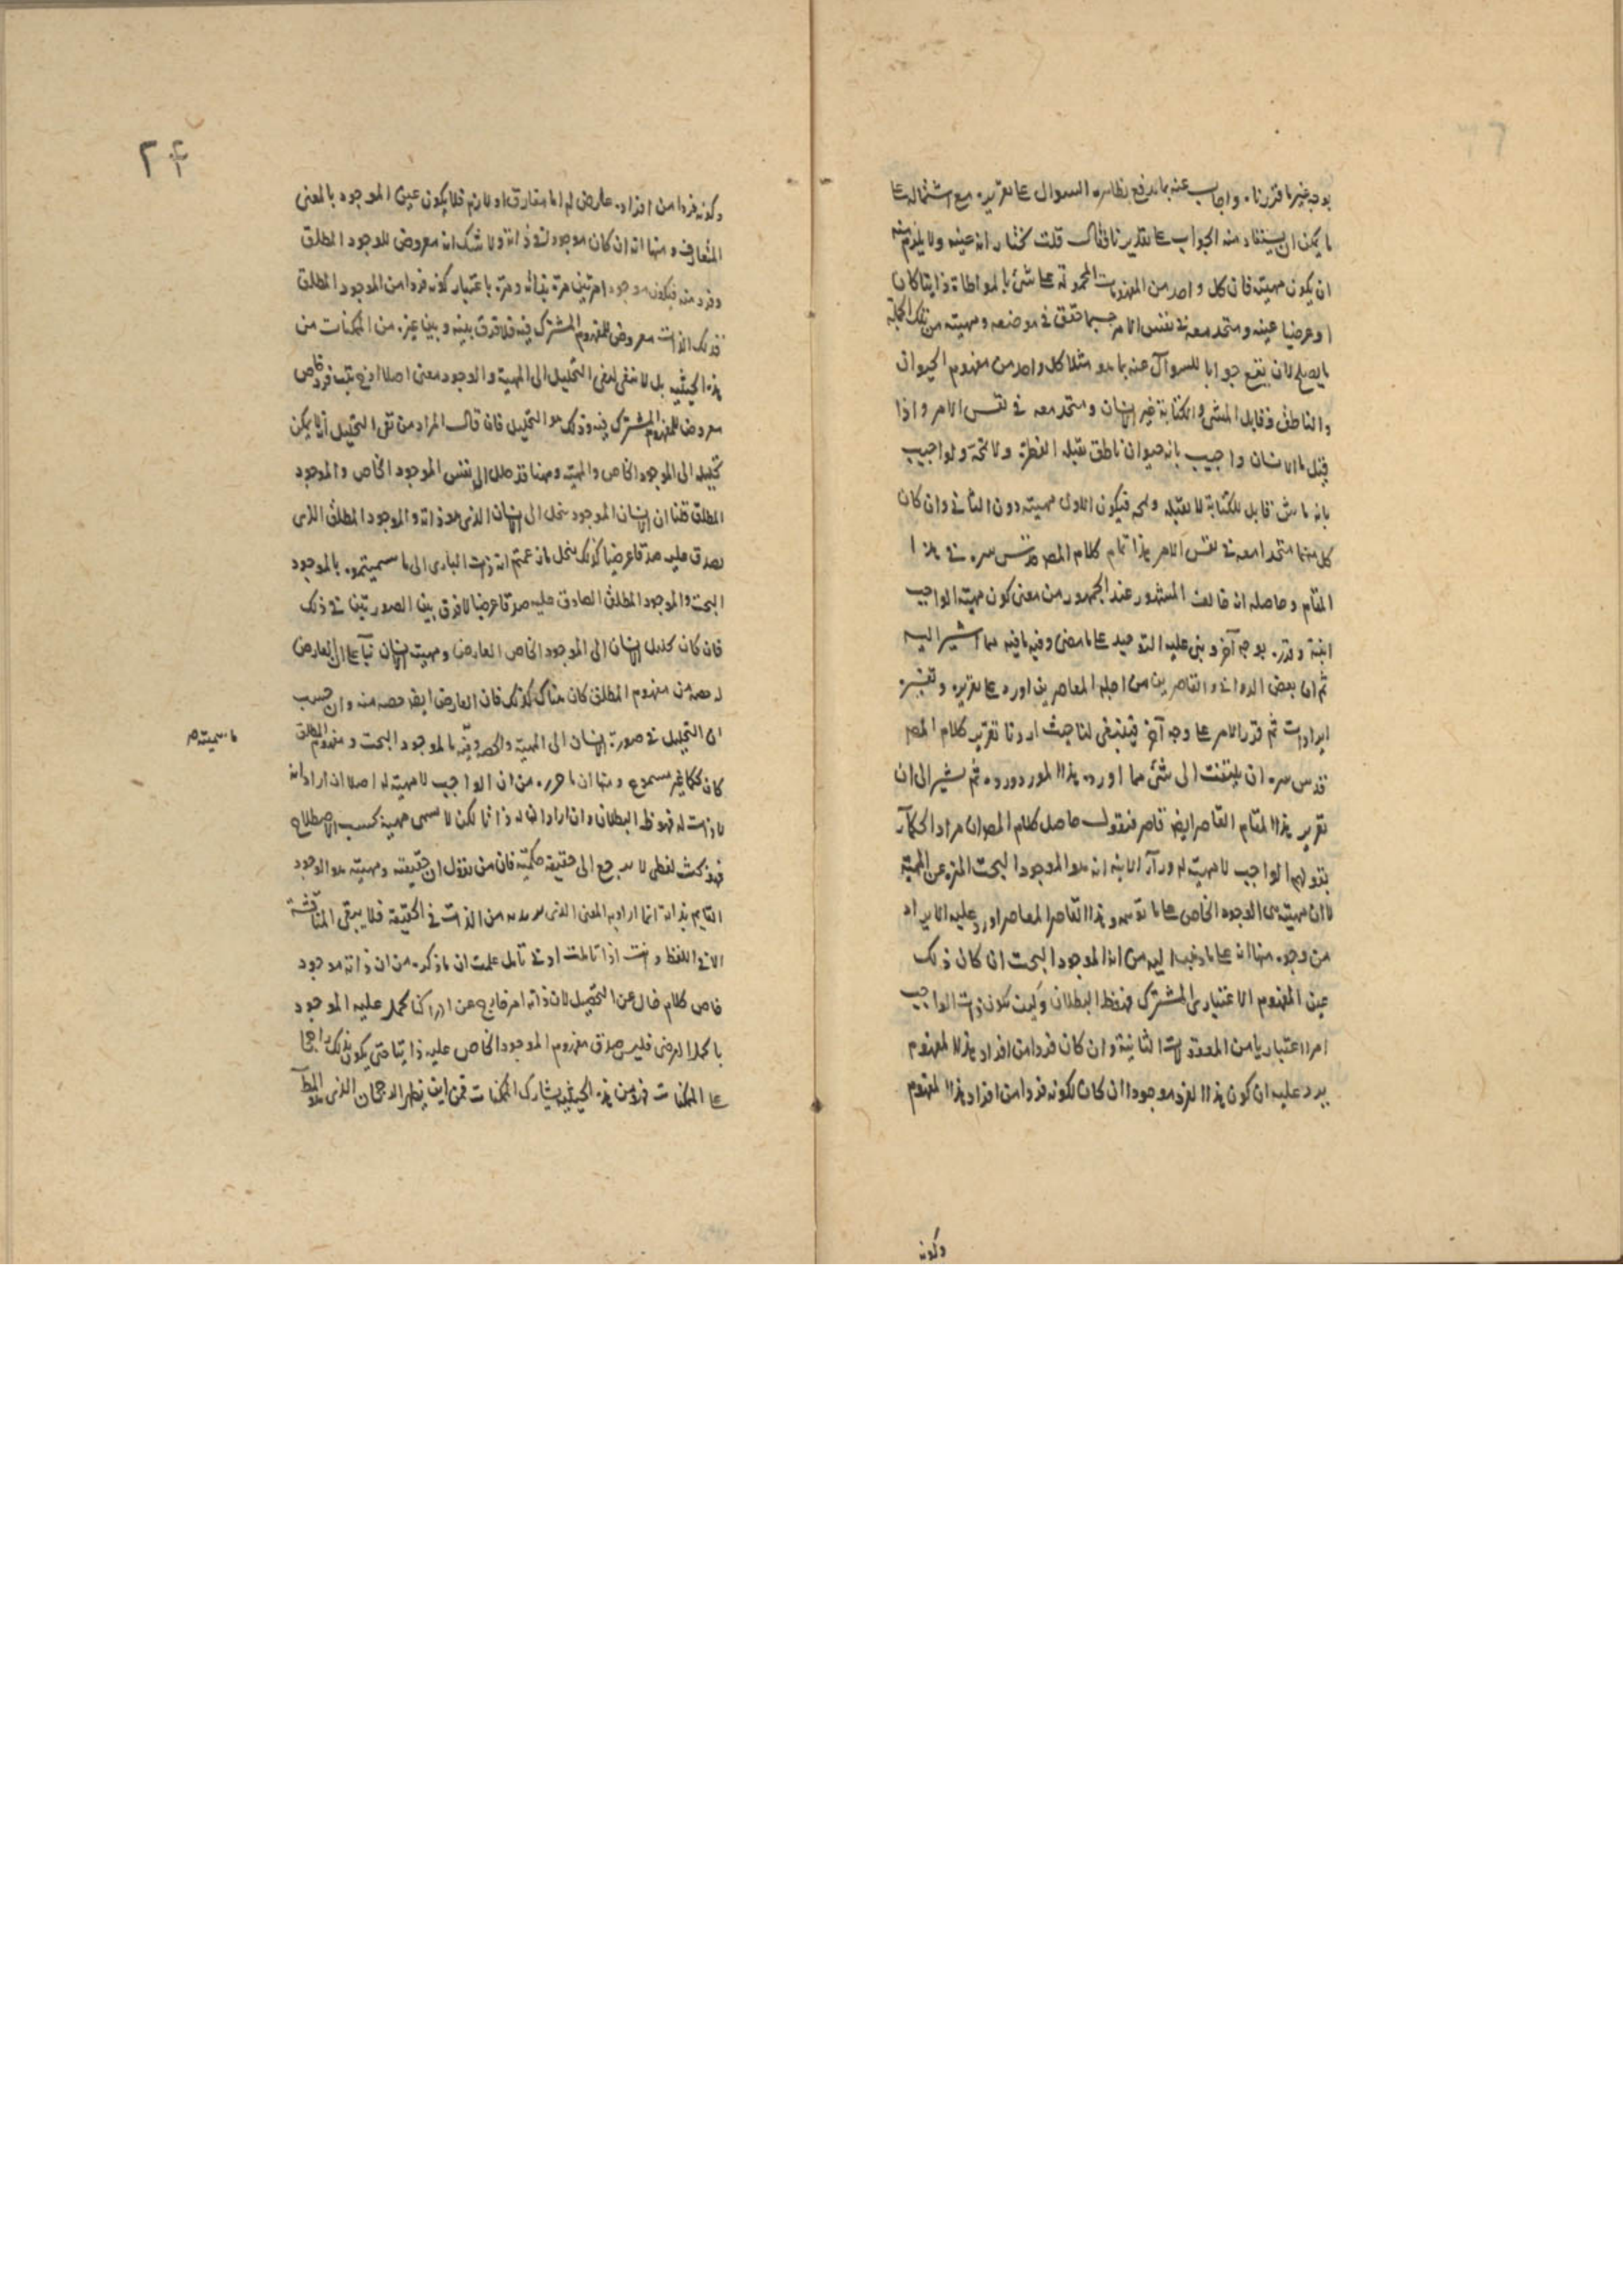 بوجه غير ما قررناه واجاب عنه بما يدفع بظاهره السوال على تقريره مع اشتماله على
ما يمكن ان يستفاد منه الجواب على تقديرنا فقال قلت نختار انه عينه ولا يلزم منه
ان يكون مهيته فان كل واحد من المفهومات المحمولة على شئ بالمواطاة ذاتيا كان
او عرضيا عينه ومتحد معه في نفس الامر حسبما حقق في موضعه ومهيته من تلك الجملة
ما يصلح لان يقع جوابا للسوال عنه بما هو مثلا كل واحد من مفهوم الحيوان
والناطق وقابل المشي والكتابة غير الانسان ومتحد معه في نفس الامر واذا
قيل ما الانسان واجيب بانه حيوان ناطق يقبله الفطرة ولا تمجه ولو اجيب
بانه ماش قابل للكتابة لا يقبله ويمجه فيكون الاول مهيته دون الثاني وان كان
كل منهما متحدا معه في نفس الامر هذا تمام كلام المصـ قدس سره في هذا
المقام وحاصله انه خالف المشهور عند الجمهور من معنى كون مهية الواجب
انيته وقرره بوجه آخر وبنى عليه التوحيد على ما مضى وفيه ما فيه مما اشير اليه
ثم ان بعض الاداني والقاصرين من اجلة المعاصرين اورد على تقريره وتفسيره
ايرادات ثم قرر الامر على وجه آخر فينبغي لنا حيث اردنا تقرير كلام المصـ
قدس سره ان يلتفت الى شئ مما اورده هذا المورد ورده ثم يشير الى ان
تقرير هذا المقام القاصر ايضا قاصر فنقول حاصل كلام المص ان مراد الحكماء
بقولهم الواجب لا مهية له وراء الانية انه هو الموجود البحت المنزه عن المهية
لا ان مهيته هي الوجود الخاص على ما توهمه وهذا القاصر المعاصر اورد عليه الايراد
من وجوه منها انه على ما ذهب اليه من انه الموجود البحت ان كان ذلك
عين المفهوم الاعتباري المشترك فهو ظ البطلان وكيف يكون ذات الواجب
امرا اعتباريا من المعقولات الثانية وان كان فردا من افراد هذا المفهوم
يرد عليه ان كون هذا الفرد موجودا ان كان لكونه فردا من افراد هذا المفهوم
وكونه
٢٤
وكونه فردا من افراده عارض له اما مفارق او لازم فلا يكون عين الموجود بالمعنى
المتعارف ومنها انه ان كان موجودا لذاته ولا شك انه معروض للوجود المطلق
وفرد منه فيكون موجودا مرتين مرة بذاته ومرة باعتبار كونه فردا من الموجود المطلق
فذلك الذات معروض للمفهوم المشترك فيه فلا فرق بينه وبين غيره من الممكنات من
هذه الحيثية بل لا يبقى لنفي التحليل الى المهية والوجود معنى اصلا اذ يثبت فرد خاص
معروض للمفهوم المشترك فيه وذلك هو التحليل فان قال المراد من نفي التحليل انه لا يمكن
تحليله الى الموجود الخاص والمهية وههنا قد حلل الى نفس الموجود الخاص والموجود
المطلق قلنا ان الانسان الموجود ينحل الى الانسان الذي هو ذاته والموجود المطلق الذي
يصدق عليه صدقا عرضيا كذلك ينحل ما زعمتم انه ذات الباري الى ما سميتموه بالموجود
البحت والموجود المطلق الصادق عليه صدقا عرضيا لا فرق بين الصورتين في ذلك
فان كان تحليل الانسان الى الموجود الخاص العارض ومهية الانسان بناء على ان العارض
له حصة من مفهوم المطلق كان هناك كذلك فان العارض ايضا حصة منه وان حسب
ان التحليل في صورة الانسان الى المهية والحصة وفيما سميته بالموجود البحت ومفهوم المطلق
ما سميته صـ
كان تحكما غير مسموع ومنها ان ما حرره من ان الواجب لا مهية له اصلا ان اراد انه
لا ذات له فهو ظ البطلان وان اراد ان له ذاتا لكن لا يسمى مهية بحسب الاصطلاح
فهو بحث لفظي لا يرجع الى حقيقة حكمية فان من يقول ان حقيقته ومهيته هو الوجود
القائم بذاته انما اراد به المعنى الذي يريد به من الذات في الحقيقة فلا يبقى المناقشة
الا في اللفظ وانت اذا تاملت ادنى تامل علمت ان ما ذكره من ان ذاته موجود
خاص كلام خال عن التحصيل لان ذاته امر خارج عن ادراكنا يحمل عليه الموجود
بالحمل العرضي فليس صدق مفهوم الموجود الخاص عليه ذاتيا حتى يكون بذلك راجحا
على الممكنات فهو من هذه الحيثية يشارك الممكنات فمن اين يظهر الرجحان الذي هو المط